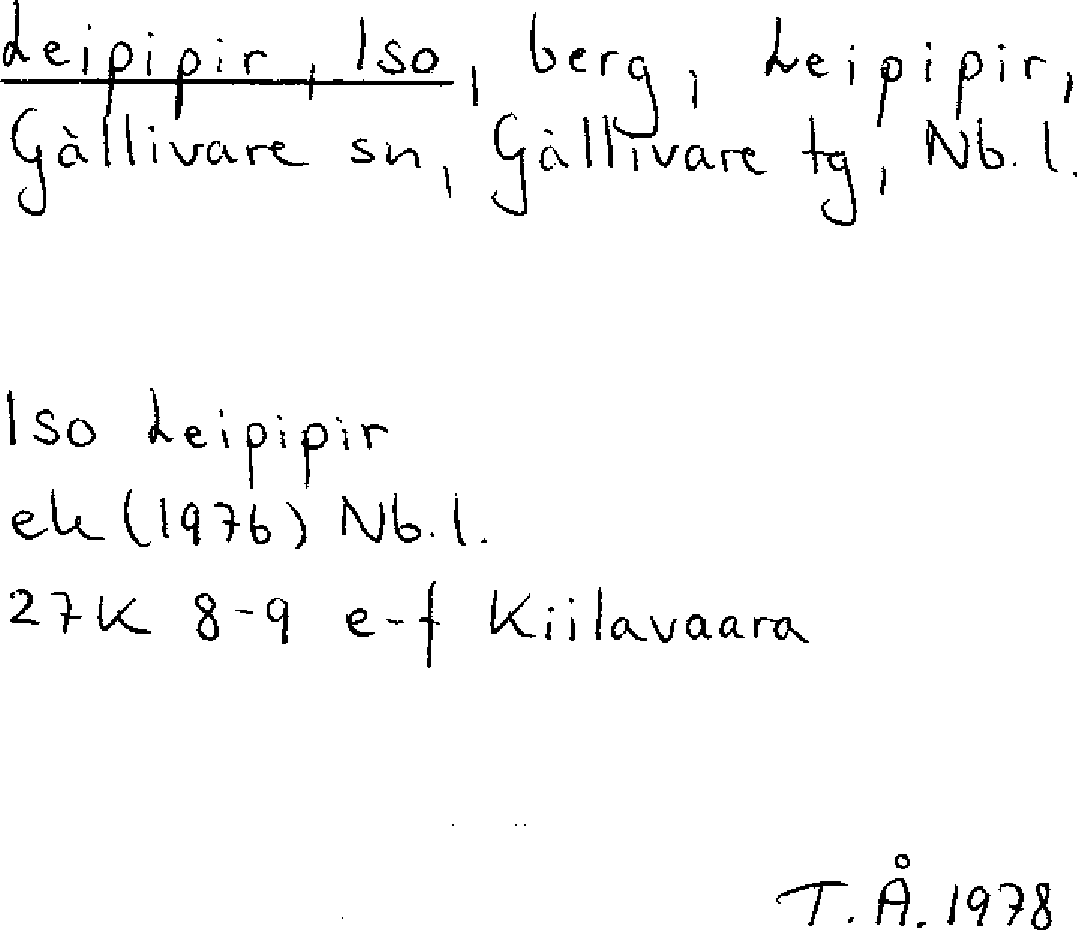 Leipipir, Iso, berg, Leipipir,
Gällivare sn, Gällivare tg, Nb.l.
Iso Leipipir
ek (1976) Nb.l.
27K 8-9 e-f Kiilavaara
T.Å. 1978